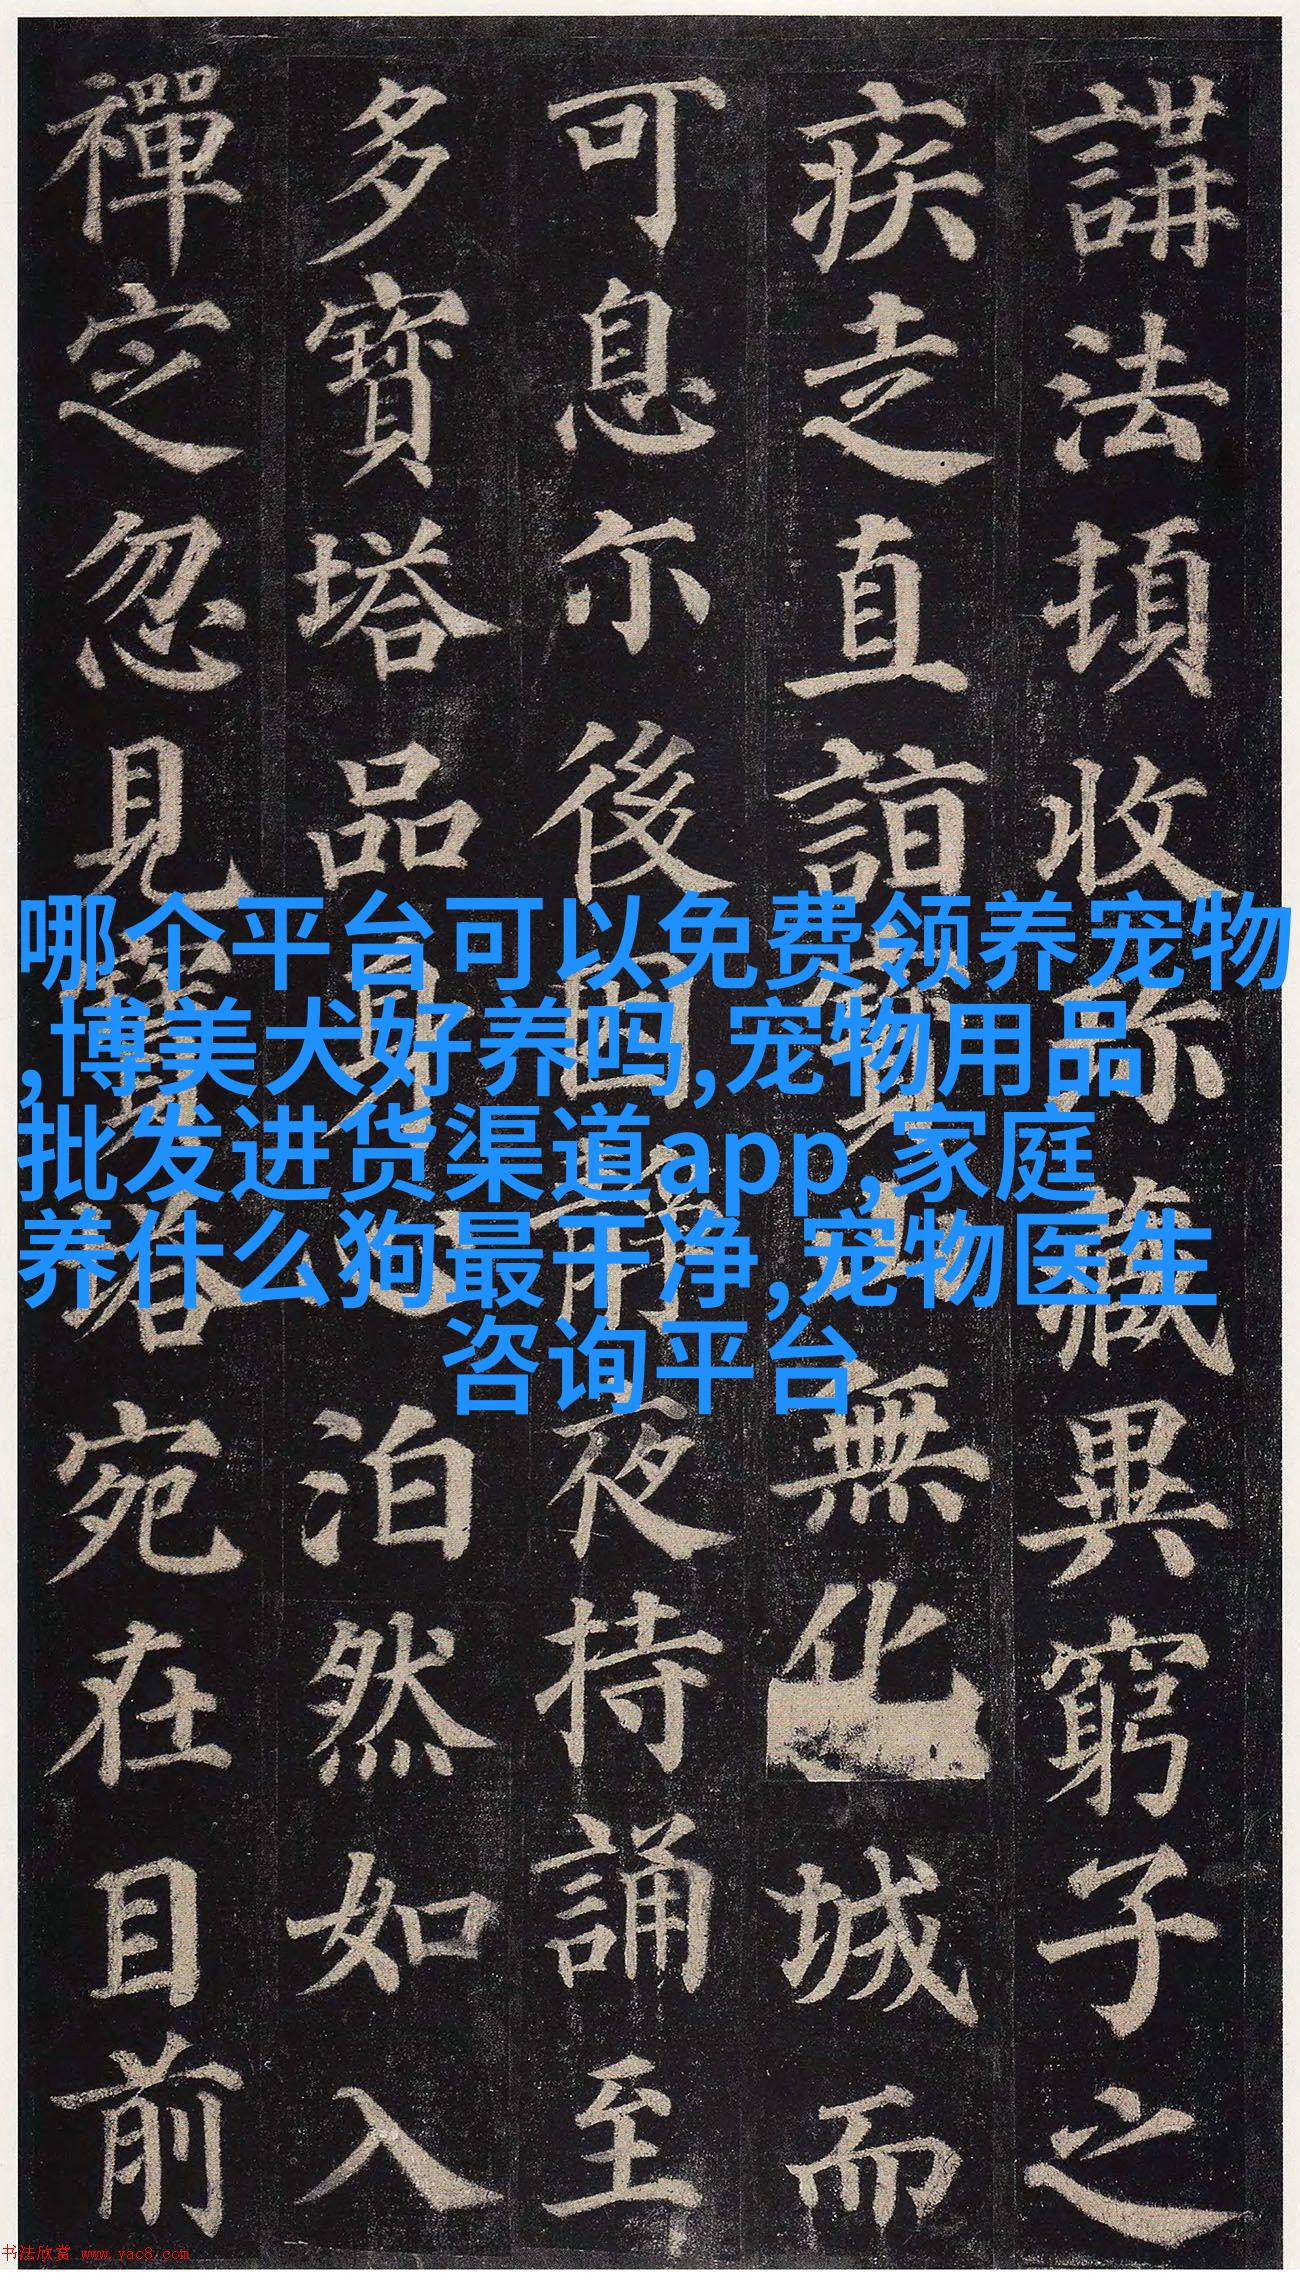 講法頓收珎藏異窮子之
疾走直詣寶山無化城而
可息尒後因静夜持誦至
多寶塔品身心泊然如入
禪定忽見寶塔宛在目前
哪个平台可以免费领养宠物
,博美犬好养吗,宠物用品
批发进货渠道app,家庭
养什么狗最干净,宠物医生
咨询平台
书法欣赏 www.yac8.com